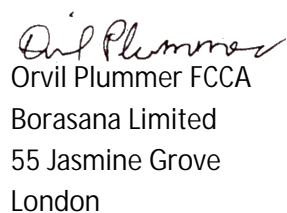 Orvil Plummer
Orvil Plummer FCCA
Borasana Limited
55 Jasmine Grove
London